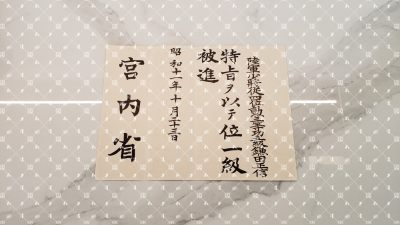 陸軍少將從四位勳三等功四級鎌田正信
特旨ヲ以テ位一級
被進
昭和十一年十月二十三日
宮内省